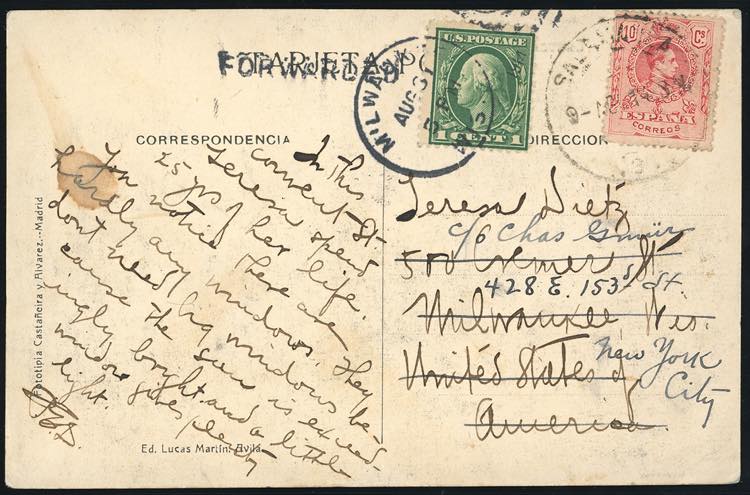 TARJETA PO
FORWARDED
U.S. POSTAGE
1 CENT 1
MILWAUKEE
AUG 3
WIS.
10 Cs
ESPAÑA
CORREOS
CORRESPONDENCIA
DIRECCION
In this
convent St.
Teresa spend
25 yrs of her life.
You notice there are
hardly any windows. They
don't need big windows be-
cause the sun is exceed-
ingly bright and a little
window gives plenty
light.
Teresa Dietz
c/o Chas
500 St
428 E. 153rd St
Milwaukee, Wis.
New York
City
United States of
America.
Fototipia Castañeira y Alvarez.--Madrid
Ed. Lucas Martín. Avila